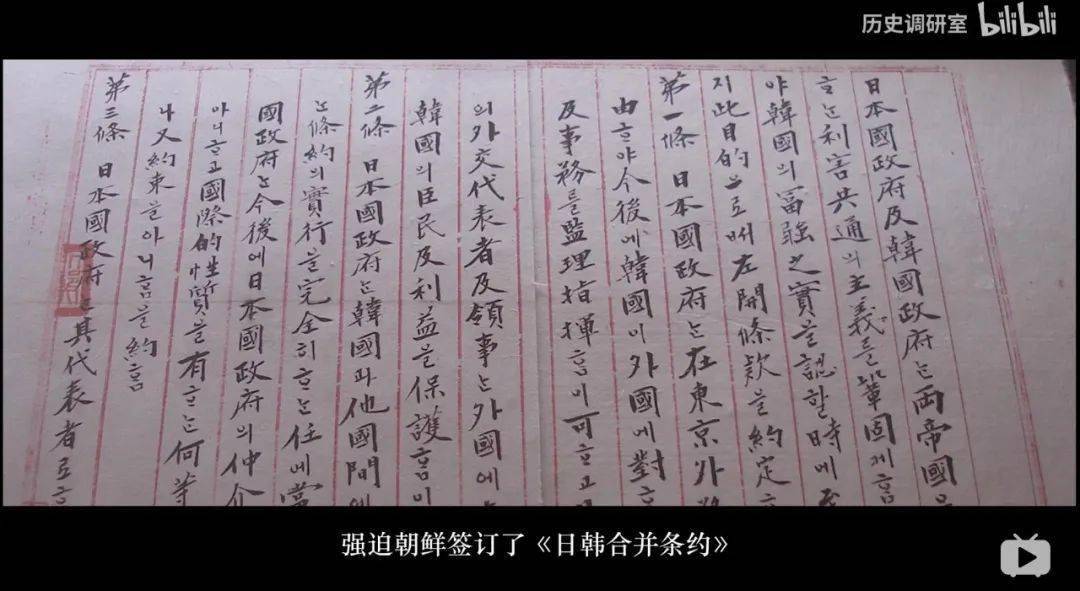 历史调研室 bilibili
日本國政府及韓國政府는兩帝國을
호는利害共通의主義를鞏固게홈
야韓國의富强之實을認할時에至
지此目的으로써左開條款을約定
第一條 日本國政府는在東京外
由호야今後에韓國이外國에對호
及事務를監理指揮홈이可호고
의外交代表者及領事는外國에
韓國의臣民及利益을保護홈이
第二條 日本國政府는韓國과他國間에
는條約의實行을完全히호는任에當
國政府는今後에日本國政府의仲介
아니호고國際的性質을有호는何等
나又約束을아니홈을約홈
第三條 日本國政府는其代表者로
强迫朝鲜签订了《日韩合并条约》